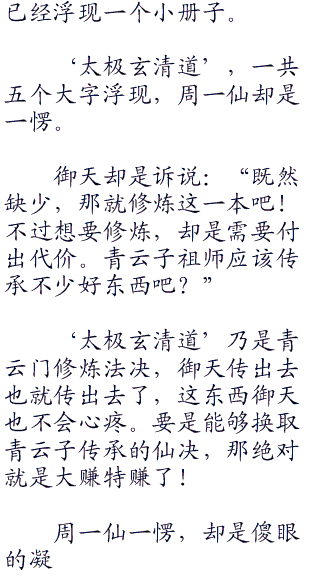 已经浮现一个小册子。
‘太极玄清道’，一共
五个大字浮现，周一仙却是
一愣。
御天却是诉说：“既然
缺少，那就修炼这一本吧！
不过想要修炼，却是需要付
出代价。青云子祖师应该传
承不少好东西吧？”
‘太极玄清道’乃是青
云门修炼法决，御天传出去
也就传出去了，这东西御天
也不会心疼。要是能够换取
青云子传承的仙决，那绝对
就是大赚特赚了！
周一仙一愣，却是傻眼
的凝